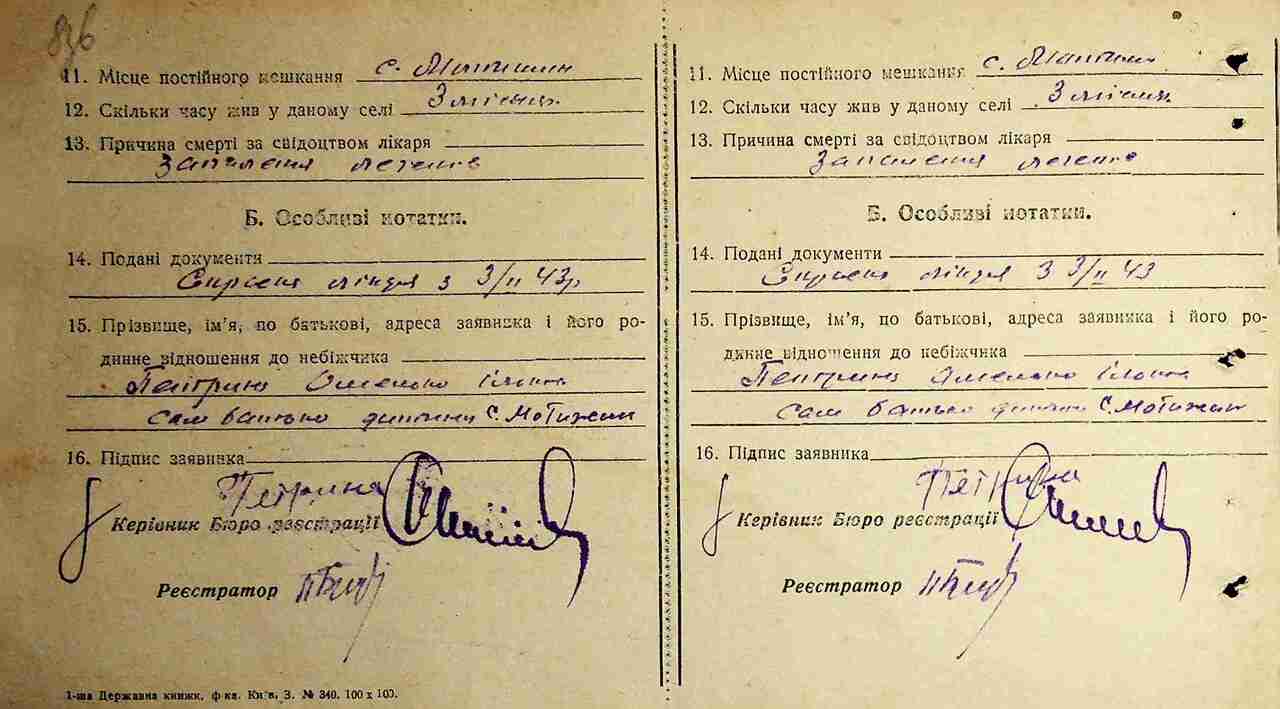 836
11. Місце постійного мешкання с. Мотижин
12. Скільки часу жив у даному селі 3 місяці
13. Причина смерті за свідоцтвом лікаря
Запалення легенів
Б. Особливі нотатки.
14. Подані документи
лікаря з 3/II 43р
15. Прізвище, ім'я, по батькові, адреса заявника і його ро-
динне відношення до небіжчика
Петрина Омелько
сам батько дитини с. Мотижин
16. Підпис заявника
Петрина
Керівник Бюро реєстрації
Реєстратор
1-ша Державна книжк. ф-ка. Київ. З. № 340. 100 х 100.
11. Місце постійного мешкання с. Мотижин
12. Скільки часу жив у даному селі 3 місяці
13. Причина смерті за свідоцтвом лікаря
Запалення легенів
Б. Особливі нотатки.
14. Подані документи
лікаря з 3/II 43
15. Прізвище, ім'я, по батькові, адреса заявника і його ро-
динне відношення до небіжчика
Петрина Омелько
сам батько дитини с. Мотижин
16. Підпис заявника
Петрина
Керівник Бюро реєстрації
Реєстратор